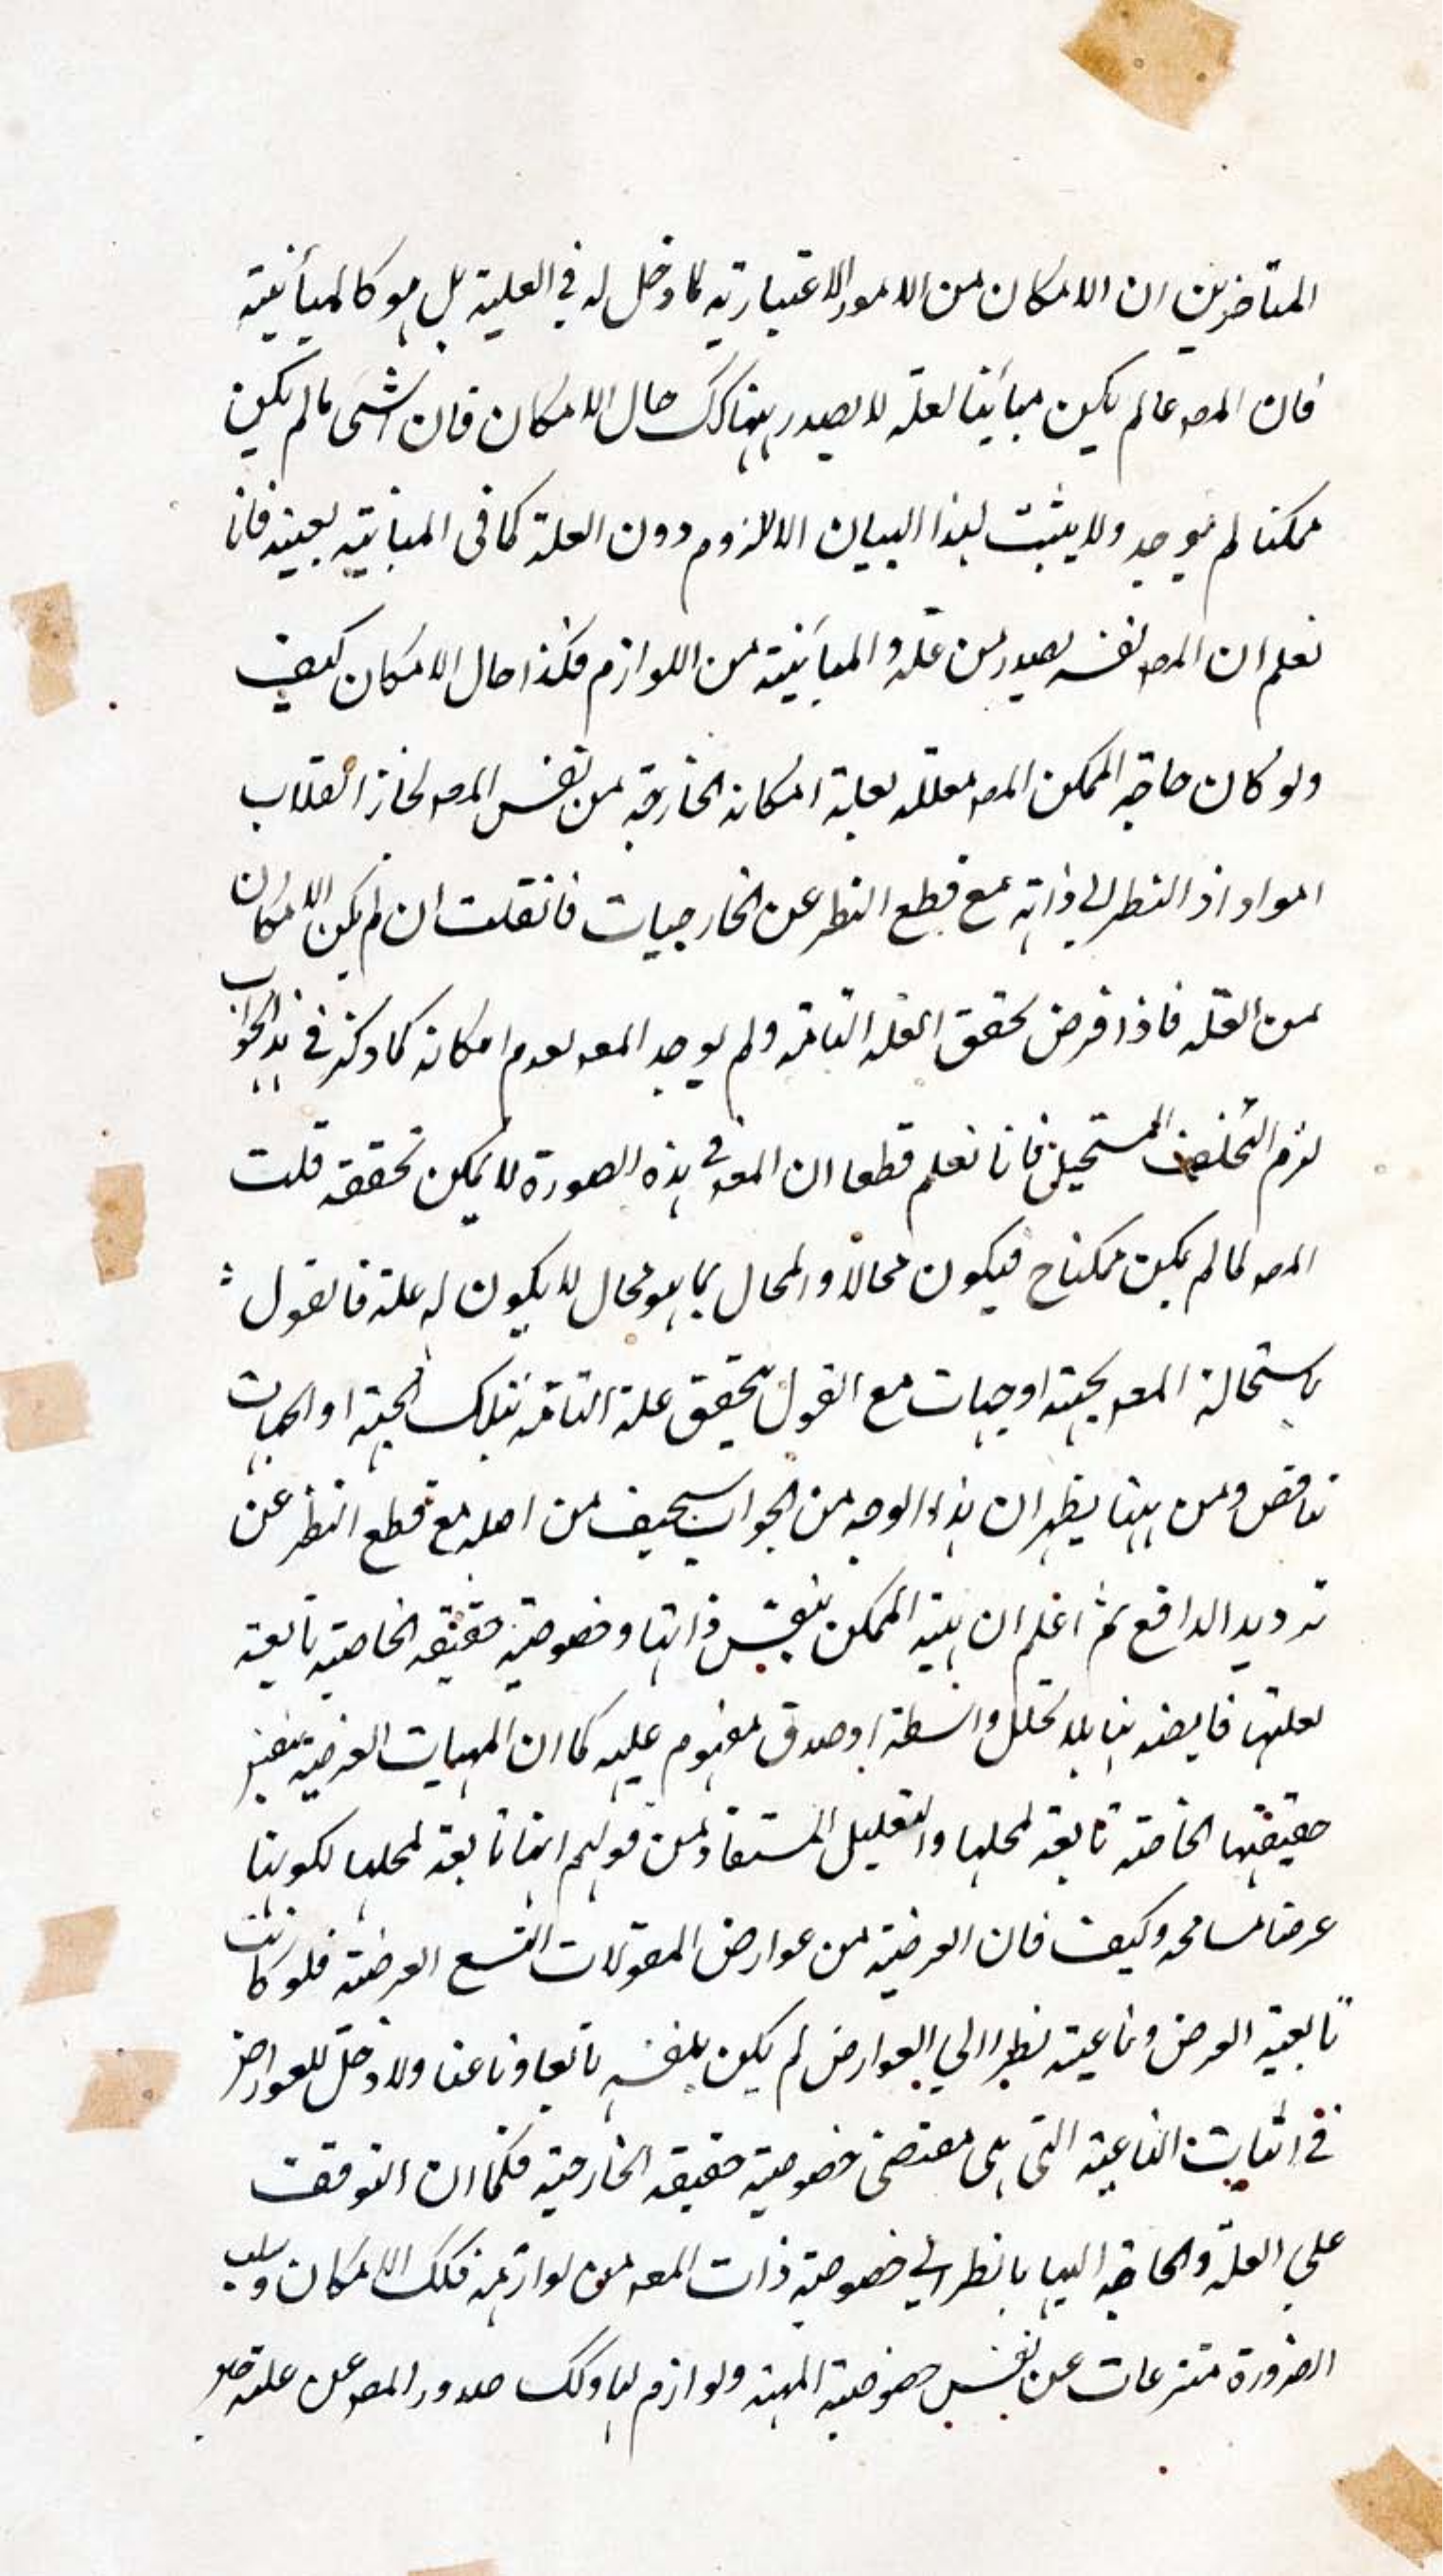 المتأخرين ان الامكان من الامور الاعتبارية لا دخل له في العلية بل هو كالمبائنية
فان المعـ ما لم يكن مبائنا لعلته لا يصدر منها كك حال الامكان فان الشئ ما لم يكن
ممكنا لم يوجد ولا يثبت بهذا البيان الا اللزوم دون العلة كما في المبائنية بعينه فانا
نعلم ان المعـ نفسه يصدر من علته والمبائنية من اللوازم فكذا حال الامكان كيف
ولو كان حاجة الممكن المعـ معللة بعلة امكانه الخارجة من نفس المعـ لجاز انقلاب
المواد اذ النظر الى ذاته مع قطع النظر عن الخارجيات فانقلت ان لم يكن الامكان
من العلة فاذا فرض تحقق العلة التامة ولم يوجد المعـ لعدم امكانه كما ذكر في هذا الجواب
لزم التخلف المستحيل فانا نعلم قطعا ان المعـ في هذه الصورة لا يمكن تحققه قلت
المعـ لما لم يكن ممكنا ح فيكون محالا والمحال بما هو محال لا يكون له علة فالقول
باستحالة المعـ بجهة او جهات مع القول بتحقق علة التامة بتلك الجهة او الجهات
تناقض ومن ههنا يظهر ان هذا الوجه من الجواب سخيف من اصله مع قطع النظر عن
ترديد الدافع ثم اعلم ان هية الممكن بنفس ذاتها وخصوصية حقيقة الخاصة تابعة
لعلتها فايضة بها بلا تخلل واسطة او صدق مفهوم عليه كما ان المهيات العرضية بنفس
حقيقتها الخاصة تابعة لمحلها والتعليل المستفاد من قولهم انها تابعة لمحلها لكونها
عرضا مسامحة وكيف فان العرضية من عوارض المقولات التسع العرضية فلو كانت
تابعية العرض وناعتية نظرا الى العوارض لم يكن بنفسه تابعا وناعتا ولا دخل للعوارض
في اثبات الناعتية التي هى مقتضى خصوصية حقيقة الخارجية فكما ان التوقف
على العلة والحاجة اليها بالنظر الى خصوصية ذات المعـ من لوازمه فكك الامكان وسلب
الضرورة منتزعات عن نفس خصوصية المهية ولوازم لها وكك صدور المعـ عن علته